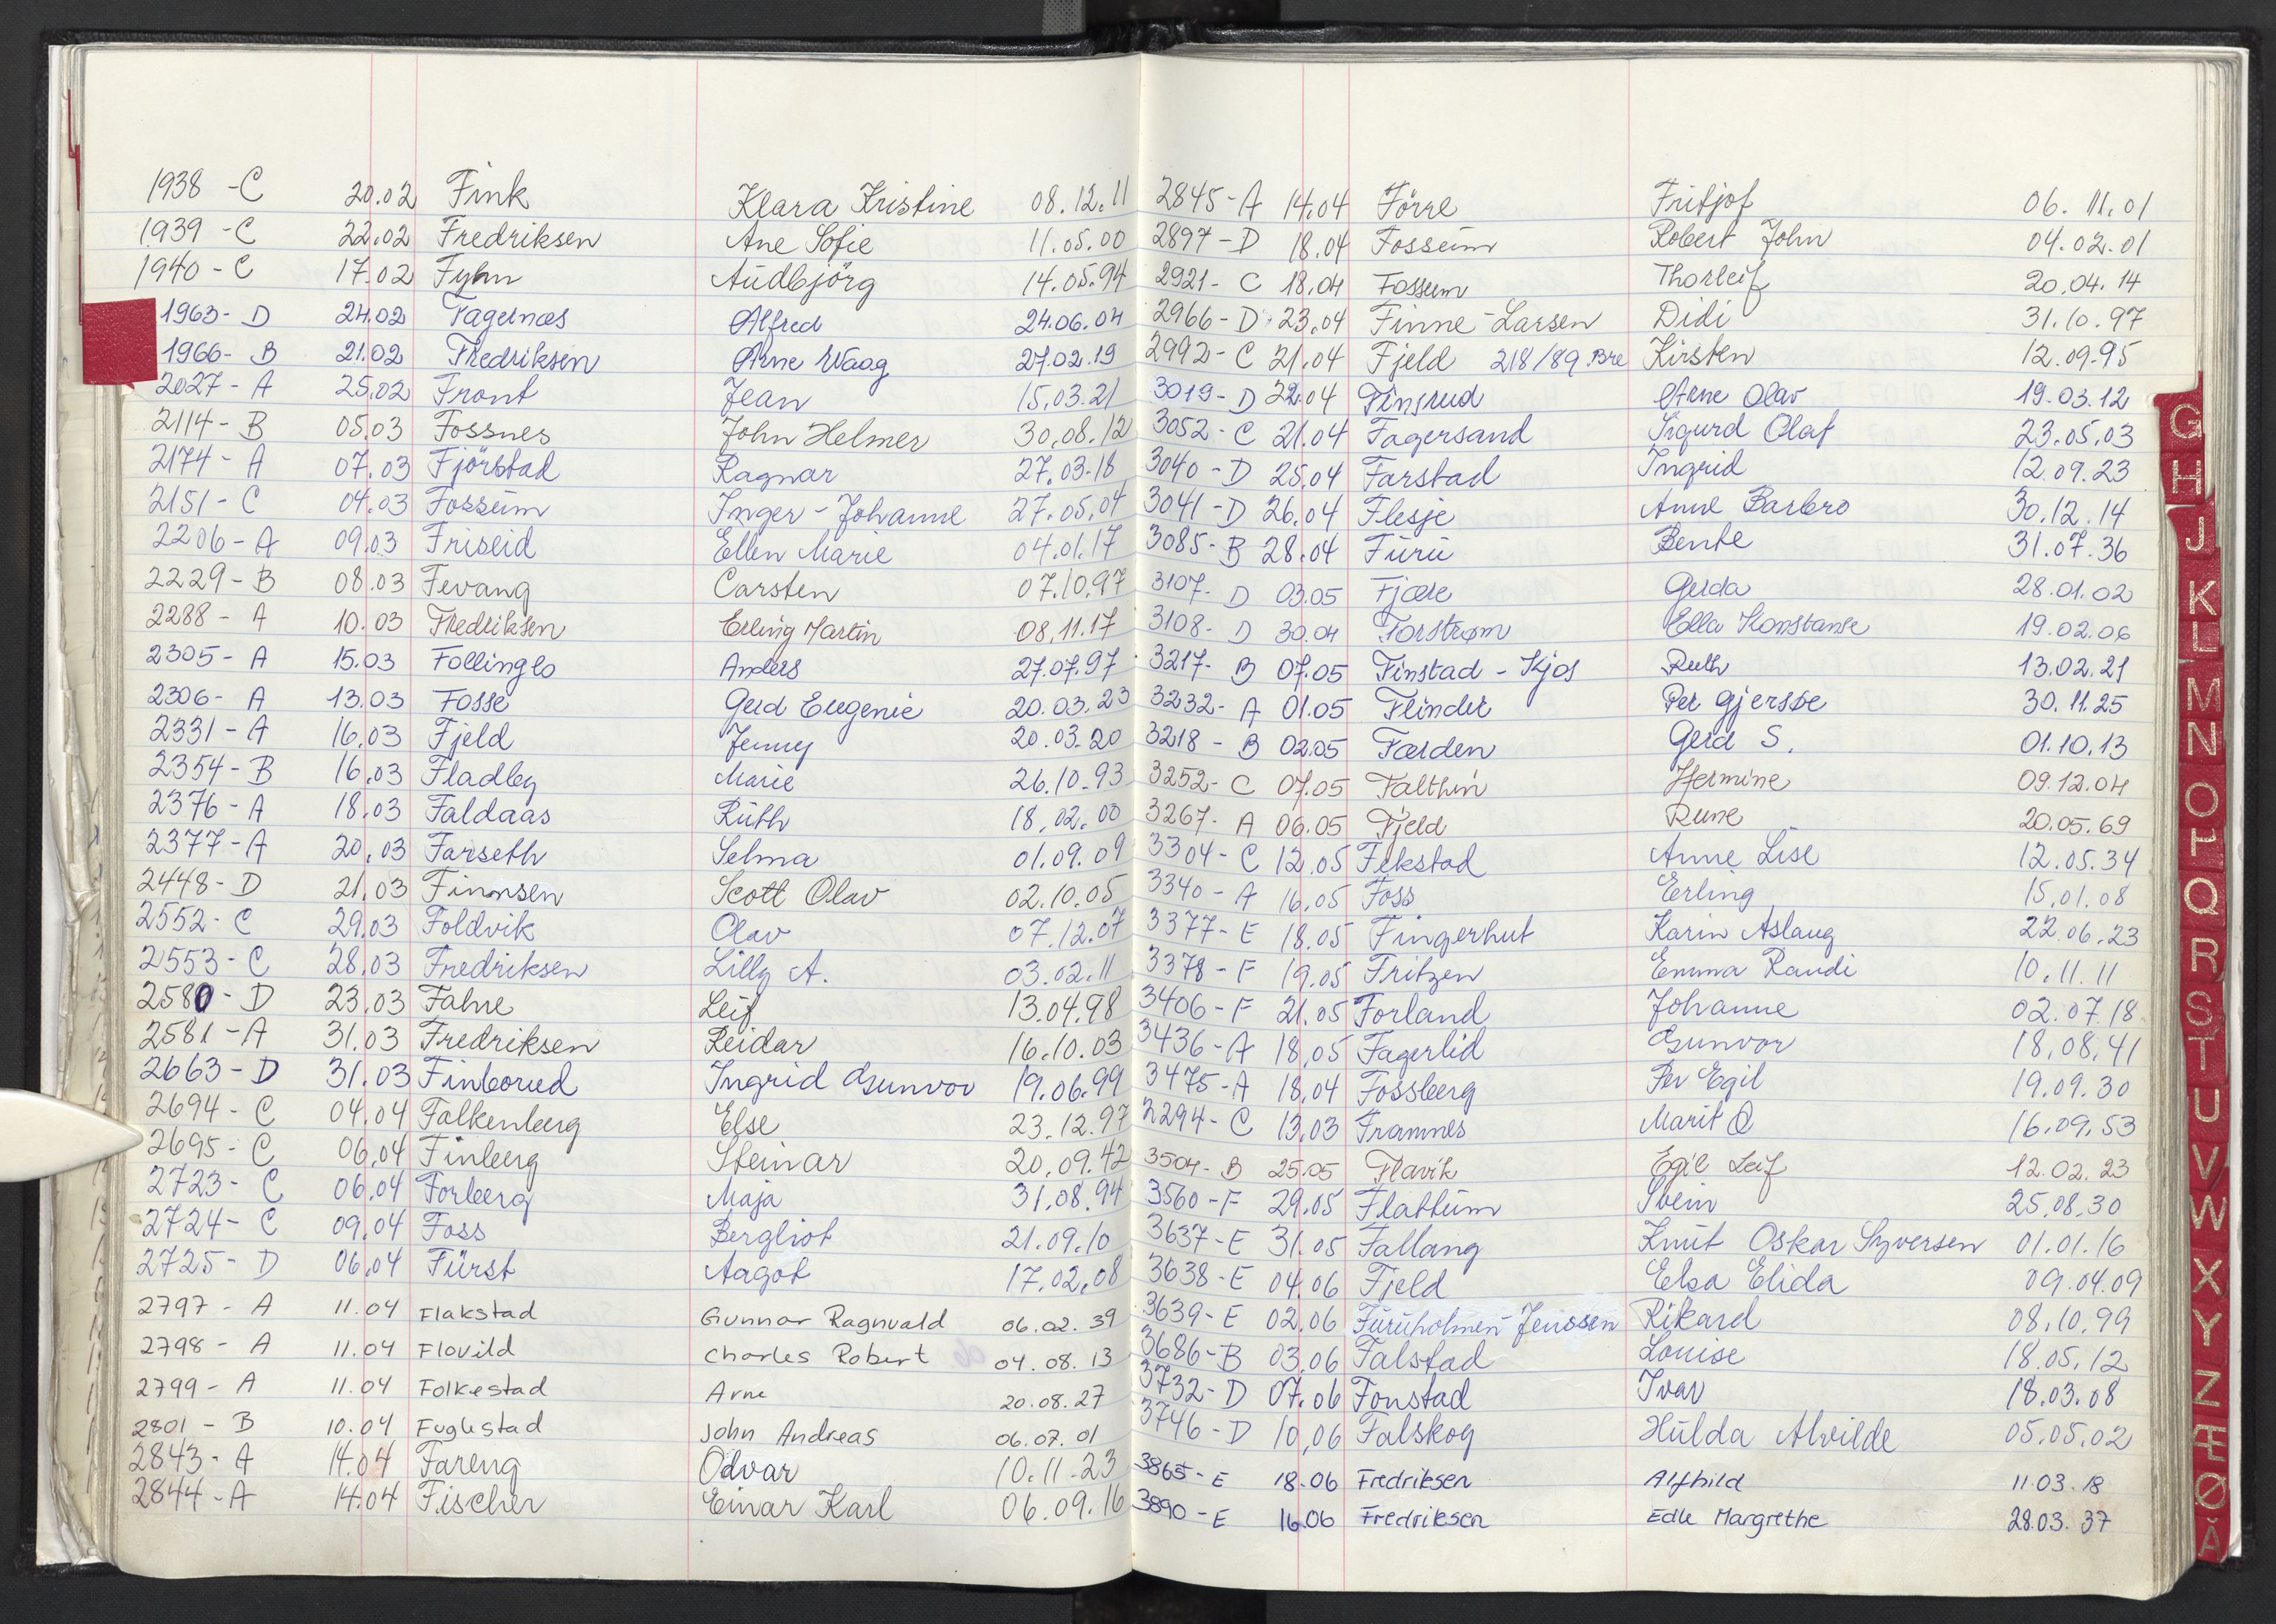 1938 - C 20.02 Fink Klara Kristine 08.12.11
1939 - C 22.02 Fredriksen Ane Sofie 11.05.00
1940 - C 17.02 Fyhn Audbjörg 14.05.94
1963 - D 24.02 Fagernæs Alfred 24.06.04
1966 - B 21.02 Fredriksen Arne Waag 27.02.19
2027 - A 25.02 Front Jean 15.03.21
2114 - B 05.03 Fossnes John Helmer 30.08.12
2174 - A 07.03 Fjörstad Ragnar 27.03.18
2151 - C 04.03 Fossum Inger - Johanne 27.05.04
2206 - A 09.03 Friseid Ellen Marie 04.01.17
2229 - B 08.03 Fevang Carsten 07.10.97
2288 - A 10.03 Fredriksen Erling Martin 08.11.17
2305 - A 15.03 Follinglo Anders 27.07.97
2306 - A 13.03 Fosse Gerd Eugenie 20.03.23
2331 - A 16.03 Fjeld Jenny 20.03.20
2354 - B 16.03 Fladby Marie 26.10.93
2376 - A 18.03 Faldaas Ruth 18.02.00
2377 - A 20.03 Farseth Selma 01.09.09
2448 - D 21.03 Finnsen Scott Olav 02.10.05
2552 - C 29.03 Foldvik Olav 07.12.07
2553 - C 28.03 Fredriksen Lilly A. 03.02.11
2580 - D 23.03 Falne Leif 13.04.98
2581 - A 31.03 Fredriksen Reidar 16.10.03
2663 - D 31.03 Finborud Ingrid Gunvor 19.06.99
2694 - C 04.04 Falkenberg Else 23.12.97
2695 - C 06.04 Finberg Steinar 20.09.42
2723 - C 06.04 Forberg Maja 31.08.94
2724 - C 09.04 Foss Bergliot 21.09.10
2725 - D 06.04 Fürst Aagot 17.02.08
2797 - A 11.04 Flakstad Gunnar Ragnvald 06.02.39
2798 - A 11.04 Flovild Charles Robert 04.08.13
2799 - A 11.04 Folkestad Arne 20.08.27
2801 - B 10.04 Fuglestad John Andreas 06.07.01
2843 - A 14.04 Fareng Odvar 10.11.23
2844 - A 14.04 Fischer Einar Karl 06.09.16
2845 - A 14.04 Förre Fritjof 06.11.01
2897 - D 18.04 Fossum Robert John 04.02.01
2921 - C 18.04 Fossum Thorleif 20.04.14
2966 - D 23.04 Finne - Larsen Didi 31.10.97
2992 - C 21.04 Fjeld 218/89 Bre Kirsten 12.09.95
3019 - D 22.04 Finsrud Arne Olav 19.03.12
3052 - C 21.04 Fagersand Sigurd Olaf 23.05.03
3040 - D 25.04 Farstad Ingrid 12.09.23
3041 - D 26.04 Flesje Anne Barbro 30.12.14
3085 - B 28.04 Furu Bente 31.07.36
3107 - D 03.05 Fjære Gerda 28.01.02
3108 - D 30.04 Forstrøm Ella Konstanse 19.02.06
3217 - B 07.05 Finstad - Kjos Ruth 13.02.21
3232 - A 01.05 Flinder Per Gjersøe 30.11.25
3218 - B 02.05 Færden Gerd S. 01.10.13
3252 - C 07.05 Falthin Hermine 09.12.04
3267 - A 06.05 Fjeld Rune 20.05.69
3304 - C 12.05 Fekstad Anne Lise 12.05.34
3340 - A 16.05 Foss Erling 15.01.08
3377 - E 18.05 Fingerhut Karin Aslaug 22.06.23
3378 - F 19.05 Fritzen Emma Randi 10.11.11
3406 - F 21.05 Forland Johanne 02.07.18
3436 - A 18.05 Fagerlid Gunvor 18.08.41
3475 - A 18.04 Fossberg Per Egil 19.09.30
2294 - C 13.03 Framnes Marit Q 16.09.53
3504 - B 25.05 Flavik Egil Leif 12.02.23
3560 - F 29.05 Flattum Svein 25.08.30
3637 - E 31.05 Fallang Knut Oskar Syversen 01.01.16
3638 - E 04.06 Fjeld Elsa Elida 09.04.09
3639 - E 02.06 Furuholmen - Jenssen Rikard 08.10.99
3686 - B 03.06 Falstad Louise 18.05.12
3732 - D 07.06 Fonstad Ivar 18.03.08
3746 - D 10.06 Falskog Hulda Alvilde 05.05.02
3865 - E 18.06 Fredriksen Alfhild 11.03.18
3890 - E 16.06 Fredriksen Edle Margrethe 28.03.37
G
H
J
K
L
M
N
O
P
Q
R
S
T
U
V
W
X
Y
Z
Æ
Ø
Å